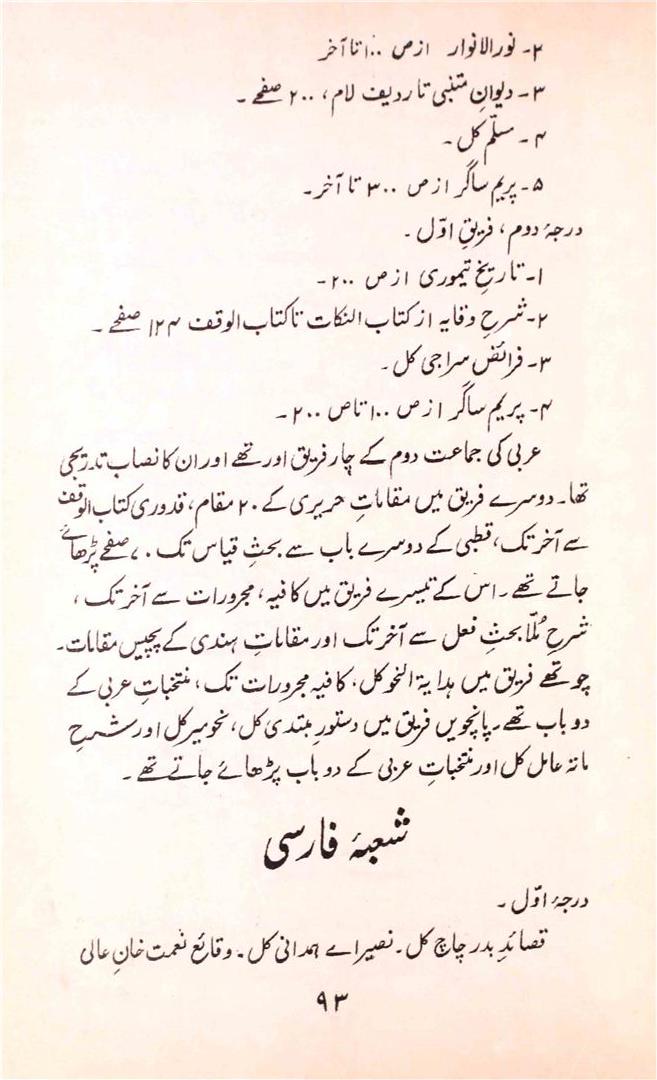 ۲۔ نورالانوار از ص ۱۰۰ تا آخر
۳۔ دیوانِ متنبی تا ردیف لام، ۲۰۰ صفحے۔
۴۔ سلّم کل۔
۵۔ پریم ساگر از ص ۳۰۰ تا آخر۔
درجۂ دوم، فریقِ اوّل۔
۱۔ تاریخِ تیموری از ص ۲۰۰۔
۲۔ شرحِ وقایہ از کتاب النکات تا کتاب الوقف ۱۲۴ صفحے۔
۳۔ فرائض سراجی کل۔
۴۔ پریم ساگر از ص ۱۰۰ تا ص ۲۰۰۔
عربی کی جماعت دوم کے چار فریق اور تھے اور ان کا نصاب تدریجی
تھا۔ دوسرے فریق میں مقاماتِ حریری کے ۲۰ مقام، قدوری کتاب الوقف
سے آخر تک، قطبی کے دوسرے باب سے بحثِ قیاس تک ۷۰ صفحے پڑھائے
جاتے تھے۔ اس کے تیسرے فریق میں کافیہ، مجرورات سے آخر تک،
شرحِ مُلّا بحثِ فعل سے آخر تک اور مقاماتِ ہندی کے پچیس مقامات۔
چوتھے فریق میں ہدایۃ النحو کل، کافیہ مجرورات تک، منتخباتِ عربی کے
دو باب تھے۔ پانچویں فریق میں دستورِ مبتدی کل، نحومیر کل اور شرحِ
مائۃ عامل کل اور منتخباتِ عربی کے دو باب پڑھائے جاتے تھے۔
شعبۂ فارسی
درجۂ اوّل۔
قصائدِ بدر چاچ کل۔ نصیراے ہمدانی کل۔ وقائع نعمت خانِ عالی
۹۳